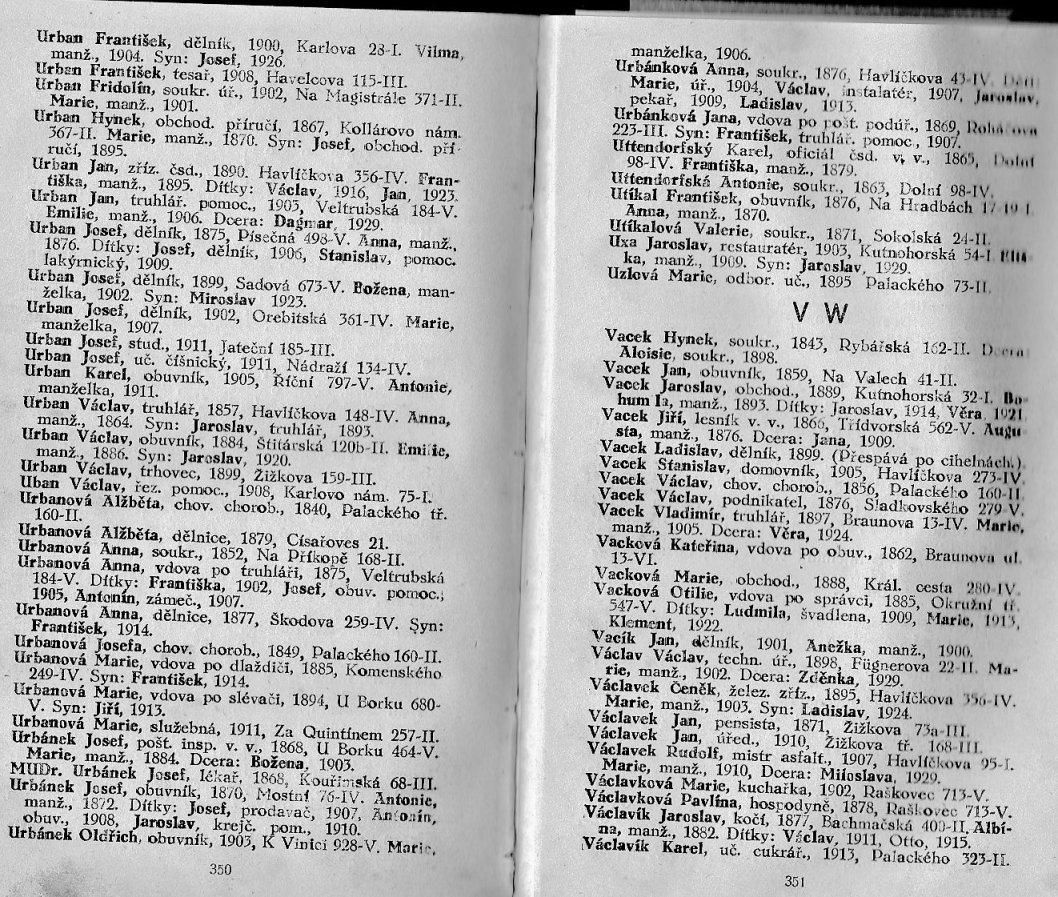 Urban František, dělník, 1900, Karlova 28-I. Vilma,
manž., 1904. Syn: Josef, 1926.
Urban František, tesař, 1908, Havelcova 115-III.
Urban Fridolín, soukr. úř., 1902, Na Magistrále 371-II.
Marie, manž., 1901.
Urban Hynek, obchod. příručí, 1867, Kollárovo nám.
367-II. Marie, manž., 1870. Syn: Josef, obchod. pří-
ručí, 1895.
Urban Jan, zříz. čsd., 1890. Havlíčkova 356-IV. Fran-
tiška, manž., 1895. Dítky: Václav, 1916, Jan, 1923.
Urban Jan, truhlář. pomoc., 1903, Veltrubská 184-V.
Emilie, manž., 1906. Dcera: Dagmar, 1929.
Urban Josef, dělník, 1875, Písečná 498-V. Anna, manž.,
1876. Dítky: Josef, dělník, 1906, Stanislav, pomoc.
lakýrnický, 1909.
Urban Josef, dělník, 1899, Sadová 673-V. Božena, man-
želka, 1902. Syn: Miroslav 1923.
Urban Josef, dělník, 1902, Orebitská 361-IV. Marie,
manželka, 1907.
Urban Josef, stud., 1911, Jateční 185-III.
Urban Josef, uč. číšnický, 1911, Nádraží 134-IV.
Urban Karel, obuvník, 1905, Říční 797-V. Antonie,
manželka, 1911.
Urban Václav, truhlář, 1857, Havlíčkova 148-IV. Anna,
manž., 1864. Syn: Jaroslav, truhlář, 1893.
Urban Václav, obuvník, 1884, Štítárská 120b-II. Emilie,
manž., 1886. Syn: Jaroslav, 1920.
Urban Václav, trhovec, 1899, Žižkova 159-III.
Uban Václav, řez. pomoc., 1908, Karlovo nám. 75-I.
Urbanová Alžběta, chov. chorob., 1840, Palackého tř.
160-II.
Urbanová Alžběta, dělnice, 1879, Císařoves 21.
Urbanová Anna, soukr., 1852, Na Příkopě 168-II.
Urbanová Anna, vdova po truhláři, 1875, Veltrubská
184-V. Dítky: Františka, 1902, Josef, obuv. pomoc.,
1905, Antonín, zámeč., 1907.
Urbanová Anna, dělnice, 1877, Škodova 259-IV. Syn:
František, 1914.
Urbanová Josefa, chov. chorob., 1849, Palackého 160-II.
Urbanová Marie, vdova po dlaždiči, 1885, Komenského
249-IV. Syn: František, 1914.
Urbanová Marie, vdova po slévači, 1894, U Borku 680-
V. Syn: Jiří, 1913.
Urbanová Marie, služebná, 1911, Za Quintínem 257-II.
Urbánek Josef, pošt. insp. v. v., 1868, U Borku 464-V.
Marie, manž., 1884. Dcera: Božena, 1903.
MUDr. Urbánek Josef, lékař, 1868, Kouřimská 68-III.
Urbánek Josef, obuvník, 1870, Mostní 76-IV. Antonie,
manž., 1872. Dítky: Josef, prodavač, 1907, Antonín,
obuv., 1908, Jaroslav, krejč. pom., 1910.
Urbánek Oldřich, obuvník, 1903, K Vinici 928-V. Marie,
350
manželka, 1906.
Urbánková Anna, soukr., 1876, Havlíčkova 43-IV.
Marie, úř., 1904, Václav, instalatér, 1907, Jaroslav,
pekař, 1909, Ladislav, 1913.
Urbánková Jana, vdova po pošt. podúř., 1869,
223-III. Syn: František, truhlář. pomoc., 1907.
Uttendorfský Karel, oficiál čsd. v. v., 1865, Dolní
98-IV. Františka, manž., 1879.
Uttendorfská Antonie, soukr., 1863, Dolní 98-IV.
Utíkal František, obuvník, 1876, Na Hradbách
Anna, manž., 1870.
Utíkalová Valerie, soukr., 1871, Sokolská 24-II.
Uxa Jaroslav, restauratér, 1903, Kutnohorská 54-I. Eliš
ka, manž., 1909. Syn: Jaroslav, 1929.
Uzlová Marie, odbor. uč., 1895 Palackého 73-II.
V W
Vacek Hynek, soukr., 1843, Rybářská 162-II. Dcera
Aloisie, soukr., 1898.
Vacek Jan, obuvník, 1859, Na Valech 41-II.
Vacek Jaroslav, obchod., 1889, Kutnohorská 32-I. Bo-
hum la, manž., 1893. Dítky: Jaroslav, 1914, Věra, 1921
Vacek Jiří, lesník v. v., 1866, Třídvorská 562-V. Augu
sta, manž., 1876. Dcera: Jana, 1909.
Vacek Ladislav, dělník, 1899. (Přespává po cihelnách.)
Vacek Stanislav, domovník, 1905, Havlíčkova 273-IV.
Vacek Václav, chov. chorob., 1856, Palackého 160-II
Vacek Václav, podnikatel, 1876, Sladkovského 279-V.
Vacek Vladimír, truhlář, 1897, Braunova 13-IV. Marie,
manž., 1905. Dcera: Věra, 1924.
Vacková Kateřina, vdova po obuv., 1862, Braunova ul.
13-VI.
Vacková Marie, obchod., 1888, Král. cesta 280-IV.
Vacková Otilie, vdova po správci, 1885, Okružní tř.
547-V. Dítky: Ludmila, švadlena, 1909, Marie, 1913,
Klement, 1922.
Vacík Jan, dělník, 1901, Anežka, manž., 1900.
Václav Václav, techn. úř., 1898, Fügnerova 22-II. Ma-
rie, manž., 1902. Dcera: Zděnka, 1929.
Václavek Čeněk, želez. zříz., 1895, Havlíčkova 356-IV.
Marie, manž., 1903. Syn: Ladislav, 1924.
Václavek Jan, pensista, 1871, Žižkova 73a-III.
Václavek Jan, úřed., 1910, Žižkova tř. 168-III.
Václavek Rudolf, mistr asfalt., 1907, Havlíčkova 95-I.
Marie, manž., 1910, Dcera: Miloslava, 1929.
Václavková Marie, kuchařka, 1902, Raškovec 713-V.
Václavková Pavlína, hospodyně, 1878, Raškovec 713-V.
Václavík Jaroslav, kočí, 1877, Bachmačská 400-II. Albí-
na, manž., 1882. Dítky: Václav, 1911, Otto, 1915.
Václavík Karel, uč. cukrář., 1913, Palackého 323-II.
351